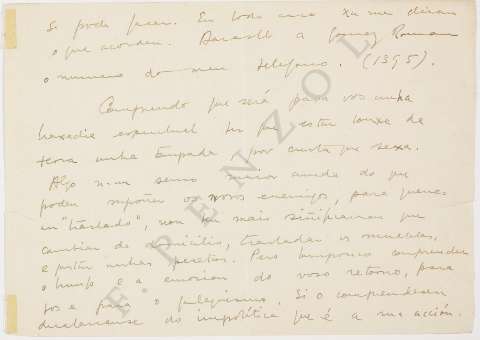 Si pode facer. En todo caso xa me diran
o que acorden. a Gomez Roman
o numero do meu telefono. (1395).
Comprendo que será para vos unha
espiritual ter que estar lonxe da
terra unha tempada, por curta que sexa.
Algo n-un senso maior ainda do que
poden supoñer os novos enemigos, para quenes
un "traslado", non ten mais siñificacion que
cambiar de domicilio, trasladar os muebles,
e unhas pesetas. Pero tampouco comprenden
o trunfo e a emocion do voso retorno, para
vos e para o galeguismo. Si o comprendesen
da impolítica que é a sua acción.
F. PENZOL